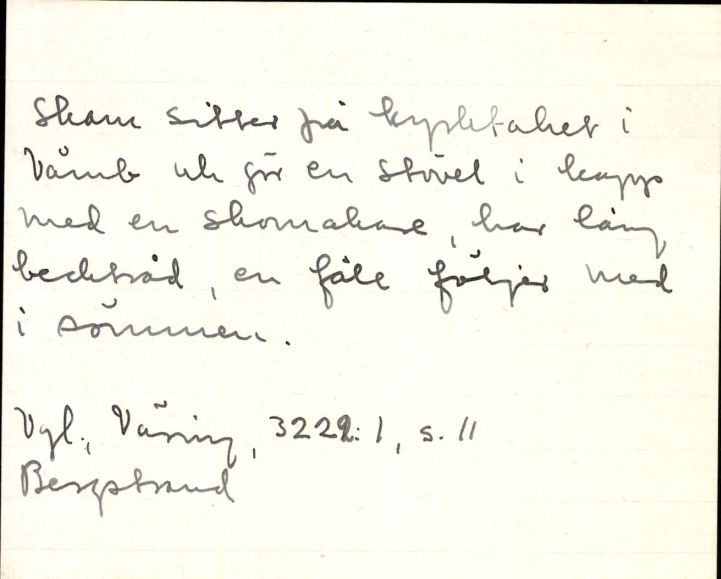 Skam sitter på kyrktaket i
Våmb och gör en stövel i kapp
med en skomakare, har lång
becktråd, en fåle följer med
i sömmen.
Vgl., Väring, 3222:1, s. 11
Bergstrand